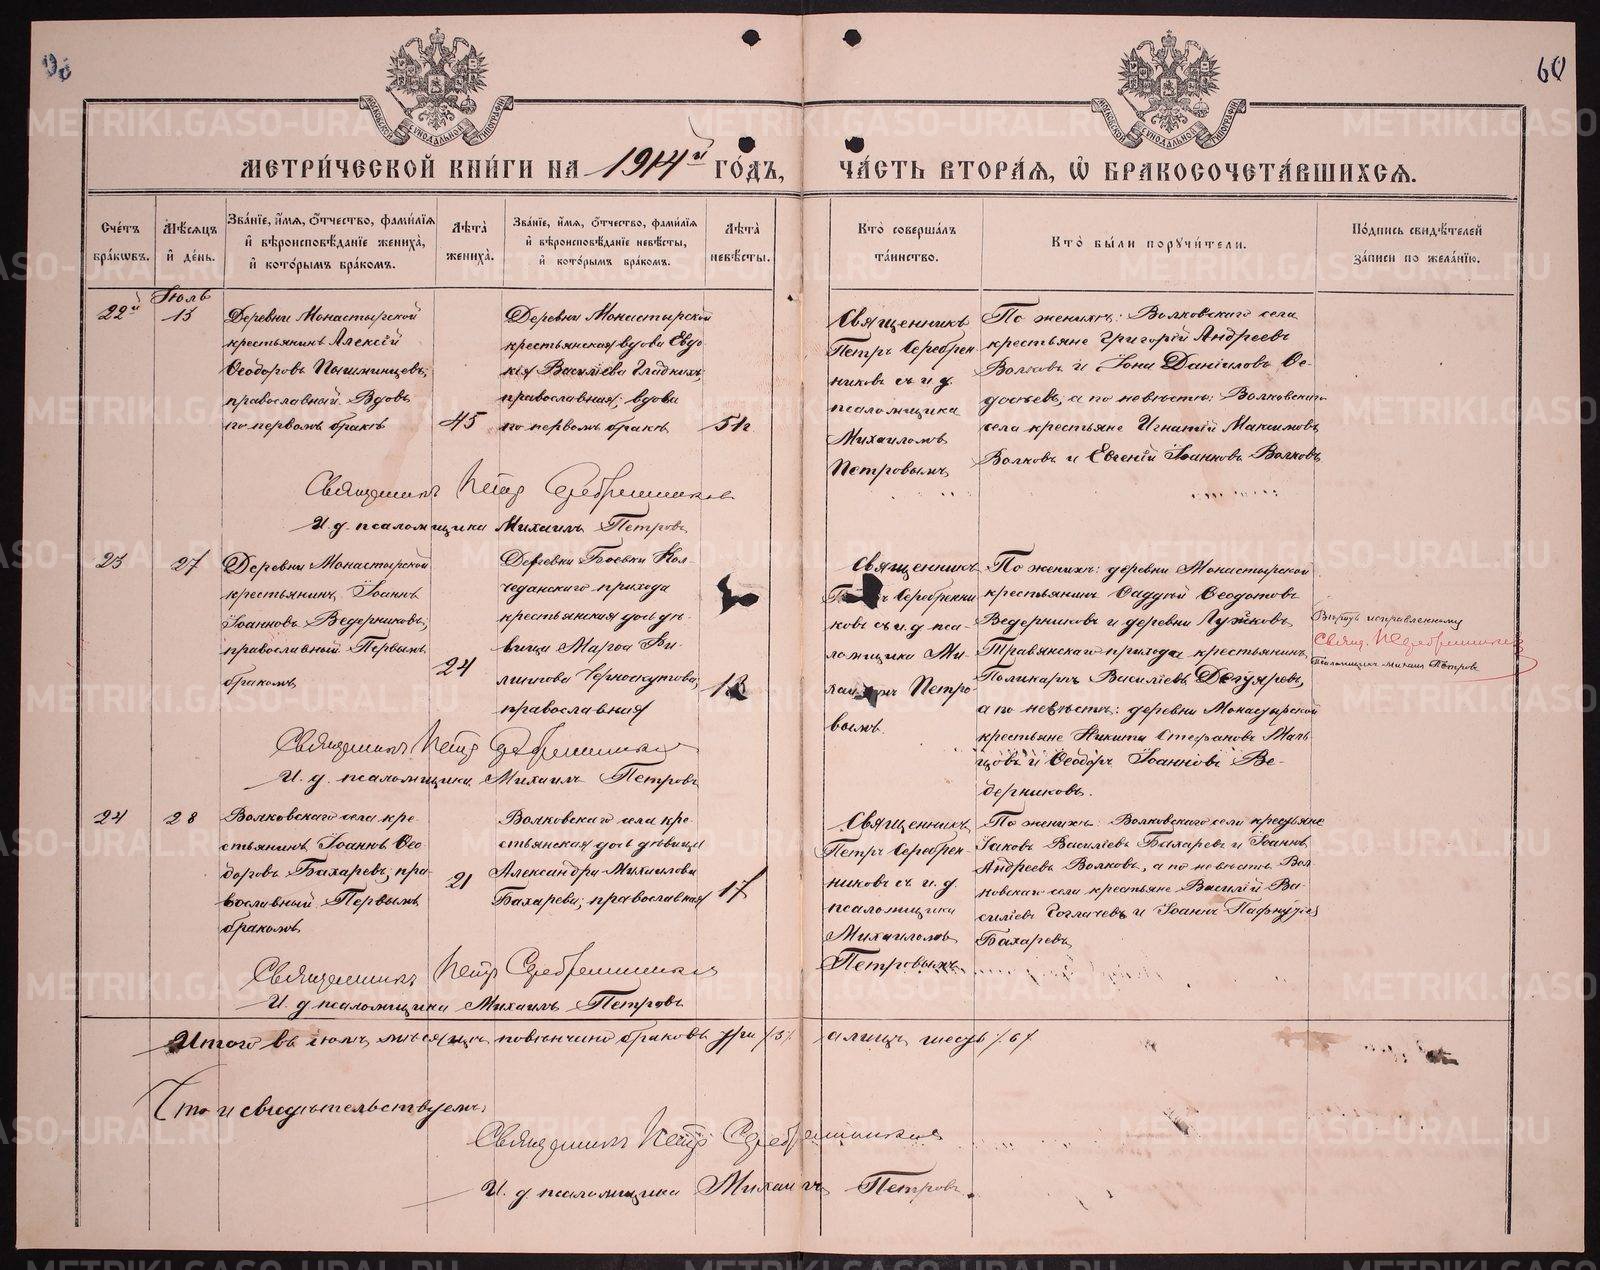 60
МЕТРИ́ЧЕСКОЙ КНИ́ГИ НА 1914й ГО́ДЪ,
ЧА́СТЬ ВТОРА́Я, Ѡ БРАКОСОЧЕТА́ВШИХСЯ.
Сче́тъ бра́кѡвъ.
Мѣ́сяцъ и҆ де́нь.
Зва́нїе, и҆́мя, ѻ҆́тчество, фами́лїя
и҆ вѣроисповѣ́данїе жениха̀,
и҆ кото́рымъ бра́комъ.
Лѣ́та жениха̀.
Зва́нїе, и҆́мя, ѻ҆́тчество, фами́лїя
и҆ вѣроисповѣ́данїе невѣ́сты,
и҆ кото́рымъ бра́комъ.
Лѣ́та невѣ́сты.
Кто̀ соверша́лъ
та́инство.
Кто̀ бы́ли поручи́тели.
По́дпись свидѣ́телей
за́писи по жела́нїю.
Іюль
22й
13
Деревни Монастырской
крестьянинъ Алексій
Ѳеодоровъ Пышминцевъ,
православный. Вдовъ
по первомъ бракѣ
45
Деревни Монастырской
крестьянская вдова Евдо
кія Василіева Гладкихъ,
православная; вдова
по первомъ бракѣ
Священникъ
Петръ Серебрен
никовъ съ и. д.
псаломщика
Михаиломъ
Петровымъ
По женихѣ: Волковскаго села
крестьяне Григорій Андреевъ
Волковъ и Іона Даніиловъ Ѳе-
досѣевъ, а по невѣстѣ: Волковскаго
села крестьяне Игнатій Максимовъ
Волковъ и Евгеній Іоанновъ Волковъ
Священникъ Петръ Серебренниковъ
И. д. псаломщика Михаилъ Петровъ
23
27
Деревни Монастырской
крестьянинъ Іоаннъ
Іоанновъ Ведерниковъ,
православный. Первымъ
бракомъ
24
Деревни Боевки Кол-
чеданскаго прихода
крестьянская дочь дѣ-
вица Марѳа Фи-
липпова Черноскутова,
православная
18
Священникъ
Серебренни
ковъ съ и. д. пса-
ломщика Ми-
Петро-
вымъ.
По женихѣ: деревни Монастырской
крестьянинъ Ѳаддей Ѳеодотовъ
Ведерниковъ и деревни Лужковъ
Травянскаго прихода крестьянинъ
Поликарпъ Василіевъ Дегтяревъ,
а по невѣстѣ: деревни Монастырской
крестьяне Никита Стефановъ Маль-
цовъ и Ѳеодоръ Іоанновъ Ве-
дерниковъ.
Вѣрить исправленному
Свящ. П. Серебренниковъ
Псаломщикъ Михаилъ Петровъ
Священникъ Петръ Серебренниковъ
И. д. псаломщика Михаилъ Петровъ
24
28
Волковскаго села кре-
стьянинъ Іоаннъ Ѳео
доровъ Бахаревъ, пра-
вославный. Первымъ
бракомъ
21
Волковскаго села кре-
стьянская дочь дѣвица
Александра Михаилова
Бахарева; православная
17
Священникъ
Петръ Серебрен-
никовъ съ и. д.
псаломщика
Михаиломъ
Петровымъ
По женихѣ: Волковскаго села крестьяне
Іаковъ Василіевъ Бахаревъ и Іоаннъ
Андреевъ Волковъ, а по невѣстѣ Вол
ковскаго села крестьяне Василій Ва-
силіевъ Гоглачевъ и Іоаннъ Пафнутіевъ
Бахаревъ
Священникъ Петръ Серебренниковъ
И. д. псаломщика Михаилъ Петровъ
Итого въ іюлѣ мѣсяцѣ повѣнчано браковъ три /3/, а лицъ шесть /6/
Что и свидѣтельствуемъ:
Священникъ Петръ Серебренниковъ
И. д. псаломщика Михаилъ Петровъ.